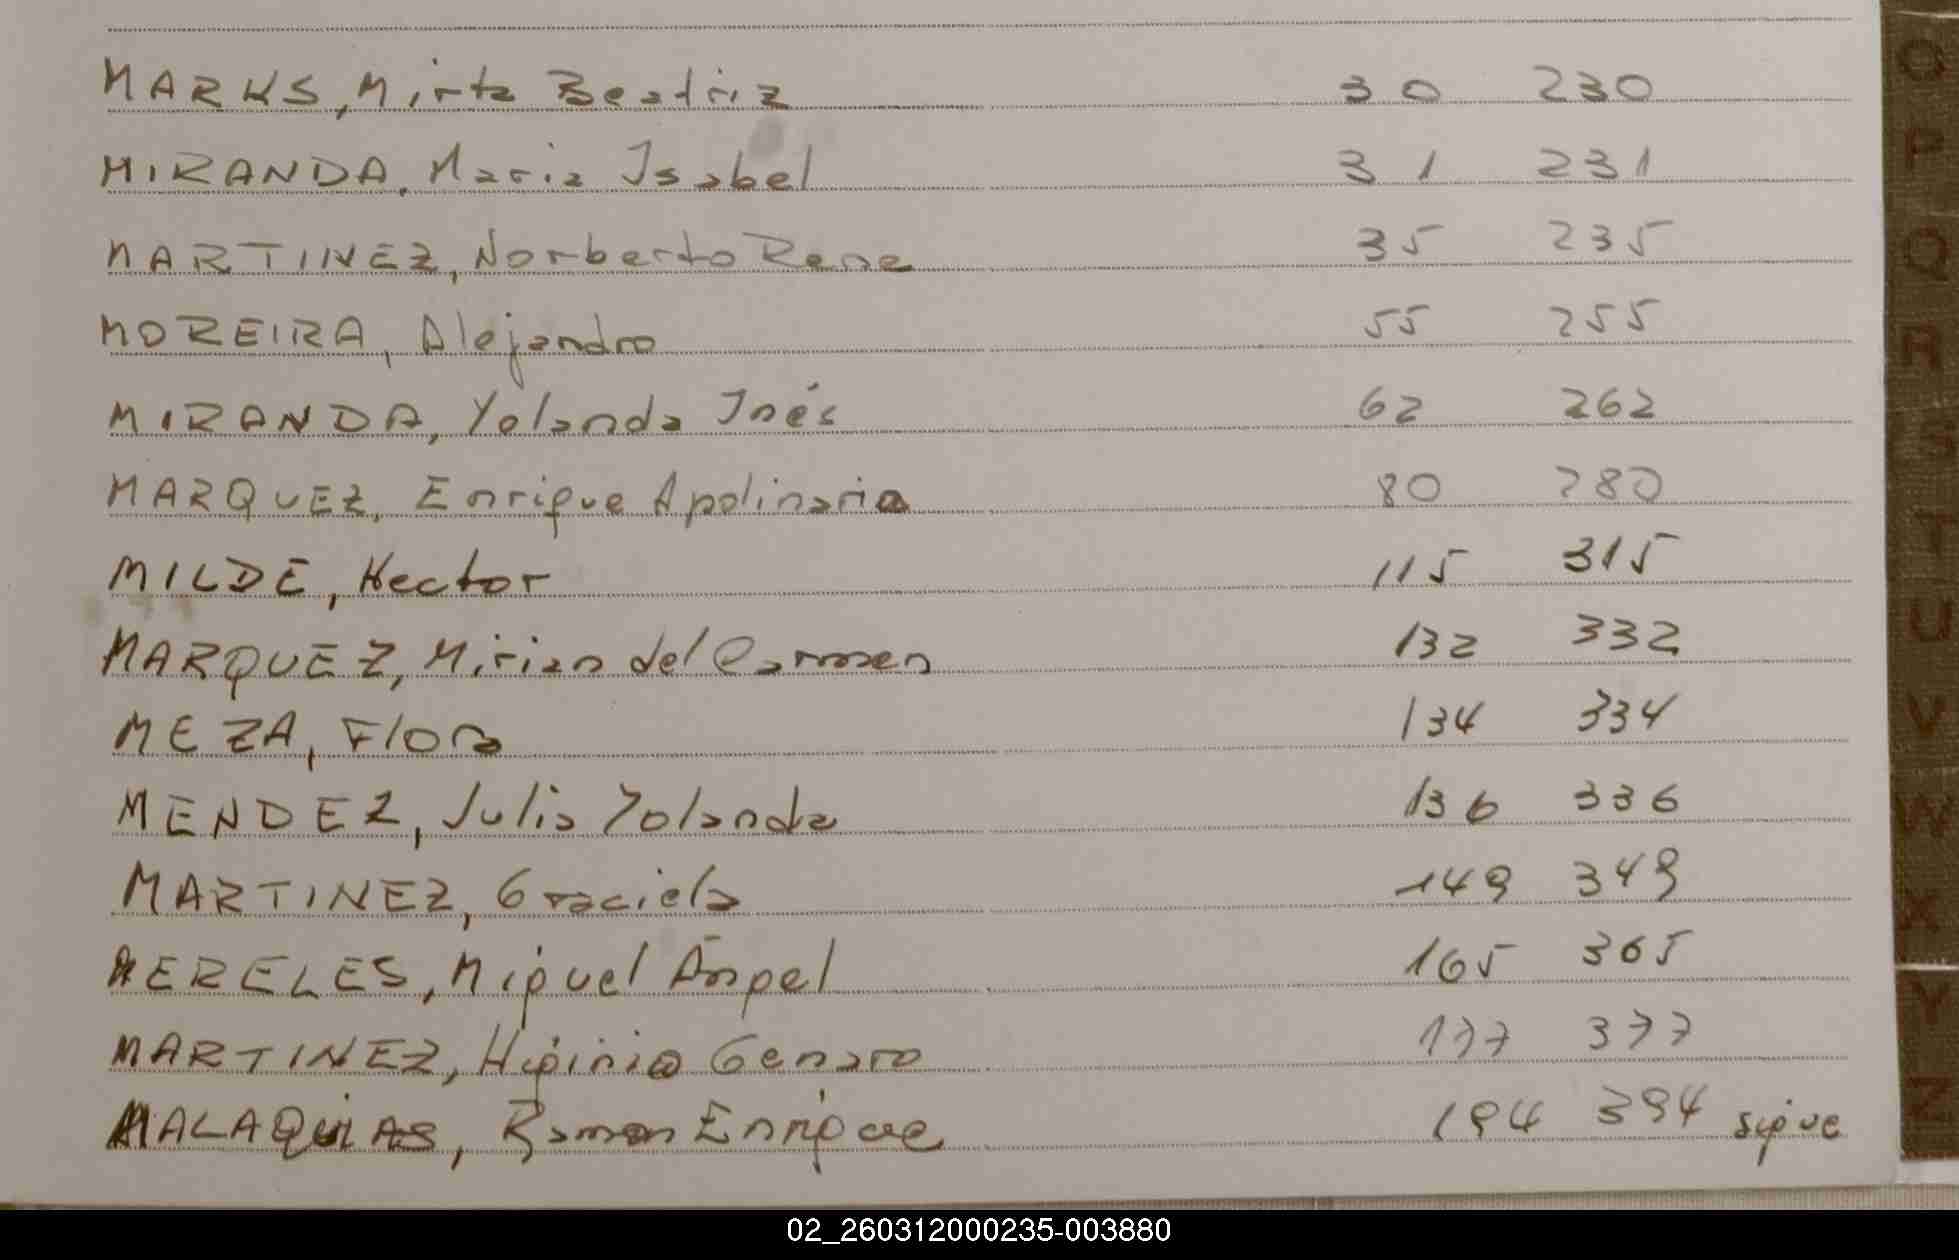 MARKS, Mirta Beatriz 30 230
MIRANDA, Maria Isabel 31 231
MARTINEZ, Norberto Rene 35 235
MOREIRA, Alejandro 55 255
MIRANDA, Yolanda Inés 62 262
MARQUEZ, Enrique Apolinario 80 280
MILDE, Hector 115 315
MARQUEZ, Mirian del Carmen 132 332
MEZA, Flora 134 334
MENDEZ, Julia Yolanda 136 336
MARTINEZ, Graciela 149 349
MERELES, Miguel Ángel 165 365
MARTINEZ, Higinio Genaro 177 377
MALAQUIAS, Ramon Enrique 194 394 sigue
O
P
Q
R
S
T
U
V
W
X
Y
Z
02_260312000235-003880